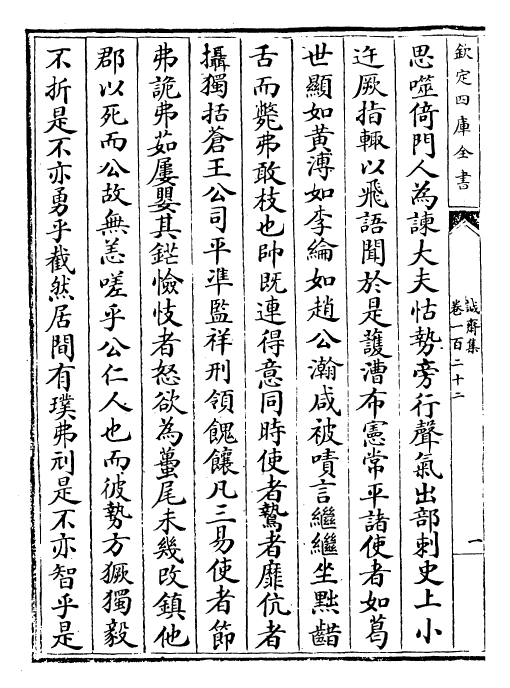 欽定四庫全書
誠齋集
卷一百二十二
一
思噬倚門人為諫大夫怙勢旁行聲氣出部刺史上小
迕厥指輙以飛語聞於是護漕布憲常平諸使者如葛
世顯如黄溥如李綸如趙公瀚咸被嘖言繼繼坐黜齰
舌而斃弗敢枝也帥既連得意同時使者驁者靡伉者
攝獨括蒼王公司平凖監祥刑領餽饟凡三易使者節
弗詭弗茹屢嬰其鋩憸忮者怒欲為蠆尾未幾改鎮他
郡以死而公故無恙嗟乎公仁人也而彼勢方獗獨毅
不折是不亦勇乎截然居間有璞弗刓是不亦智乎是